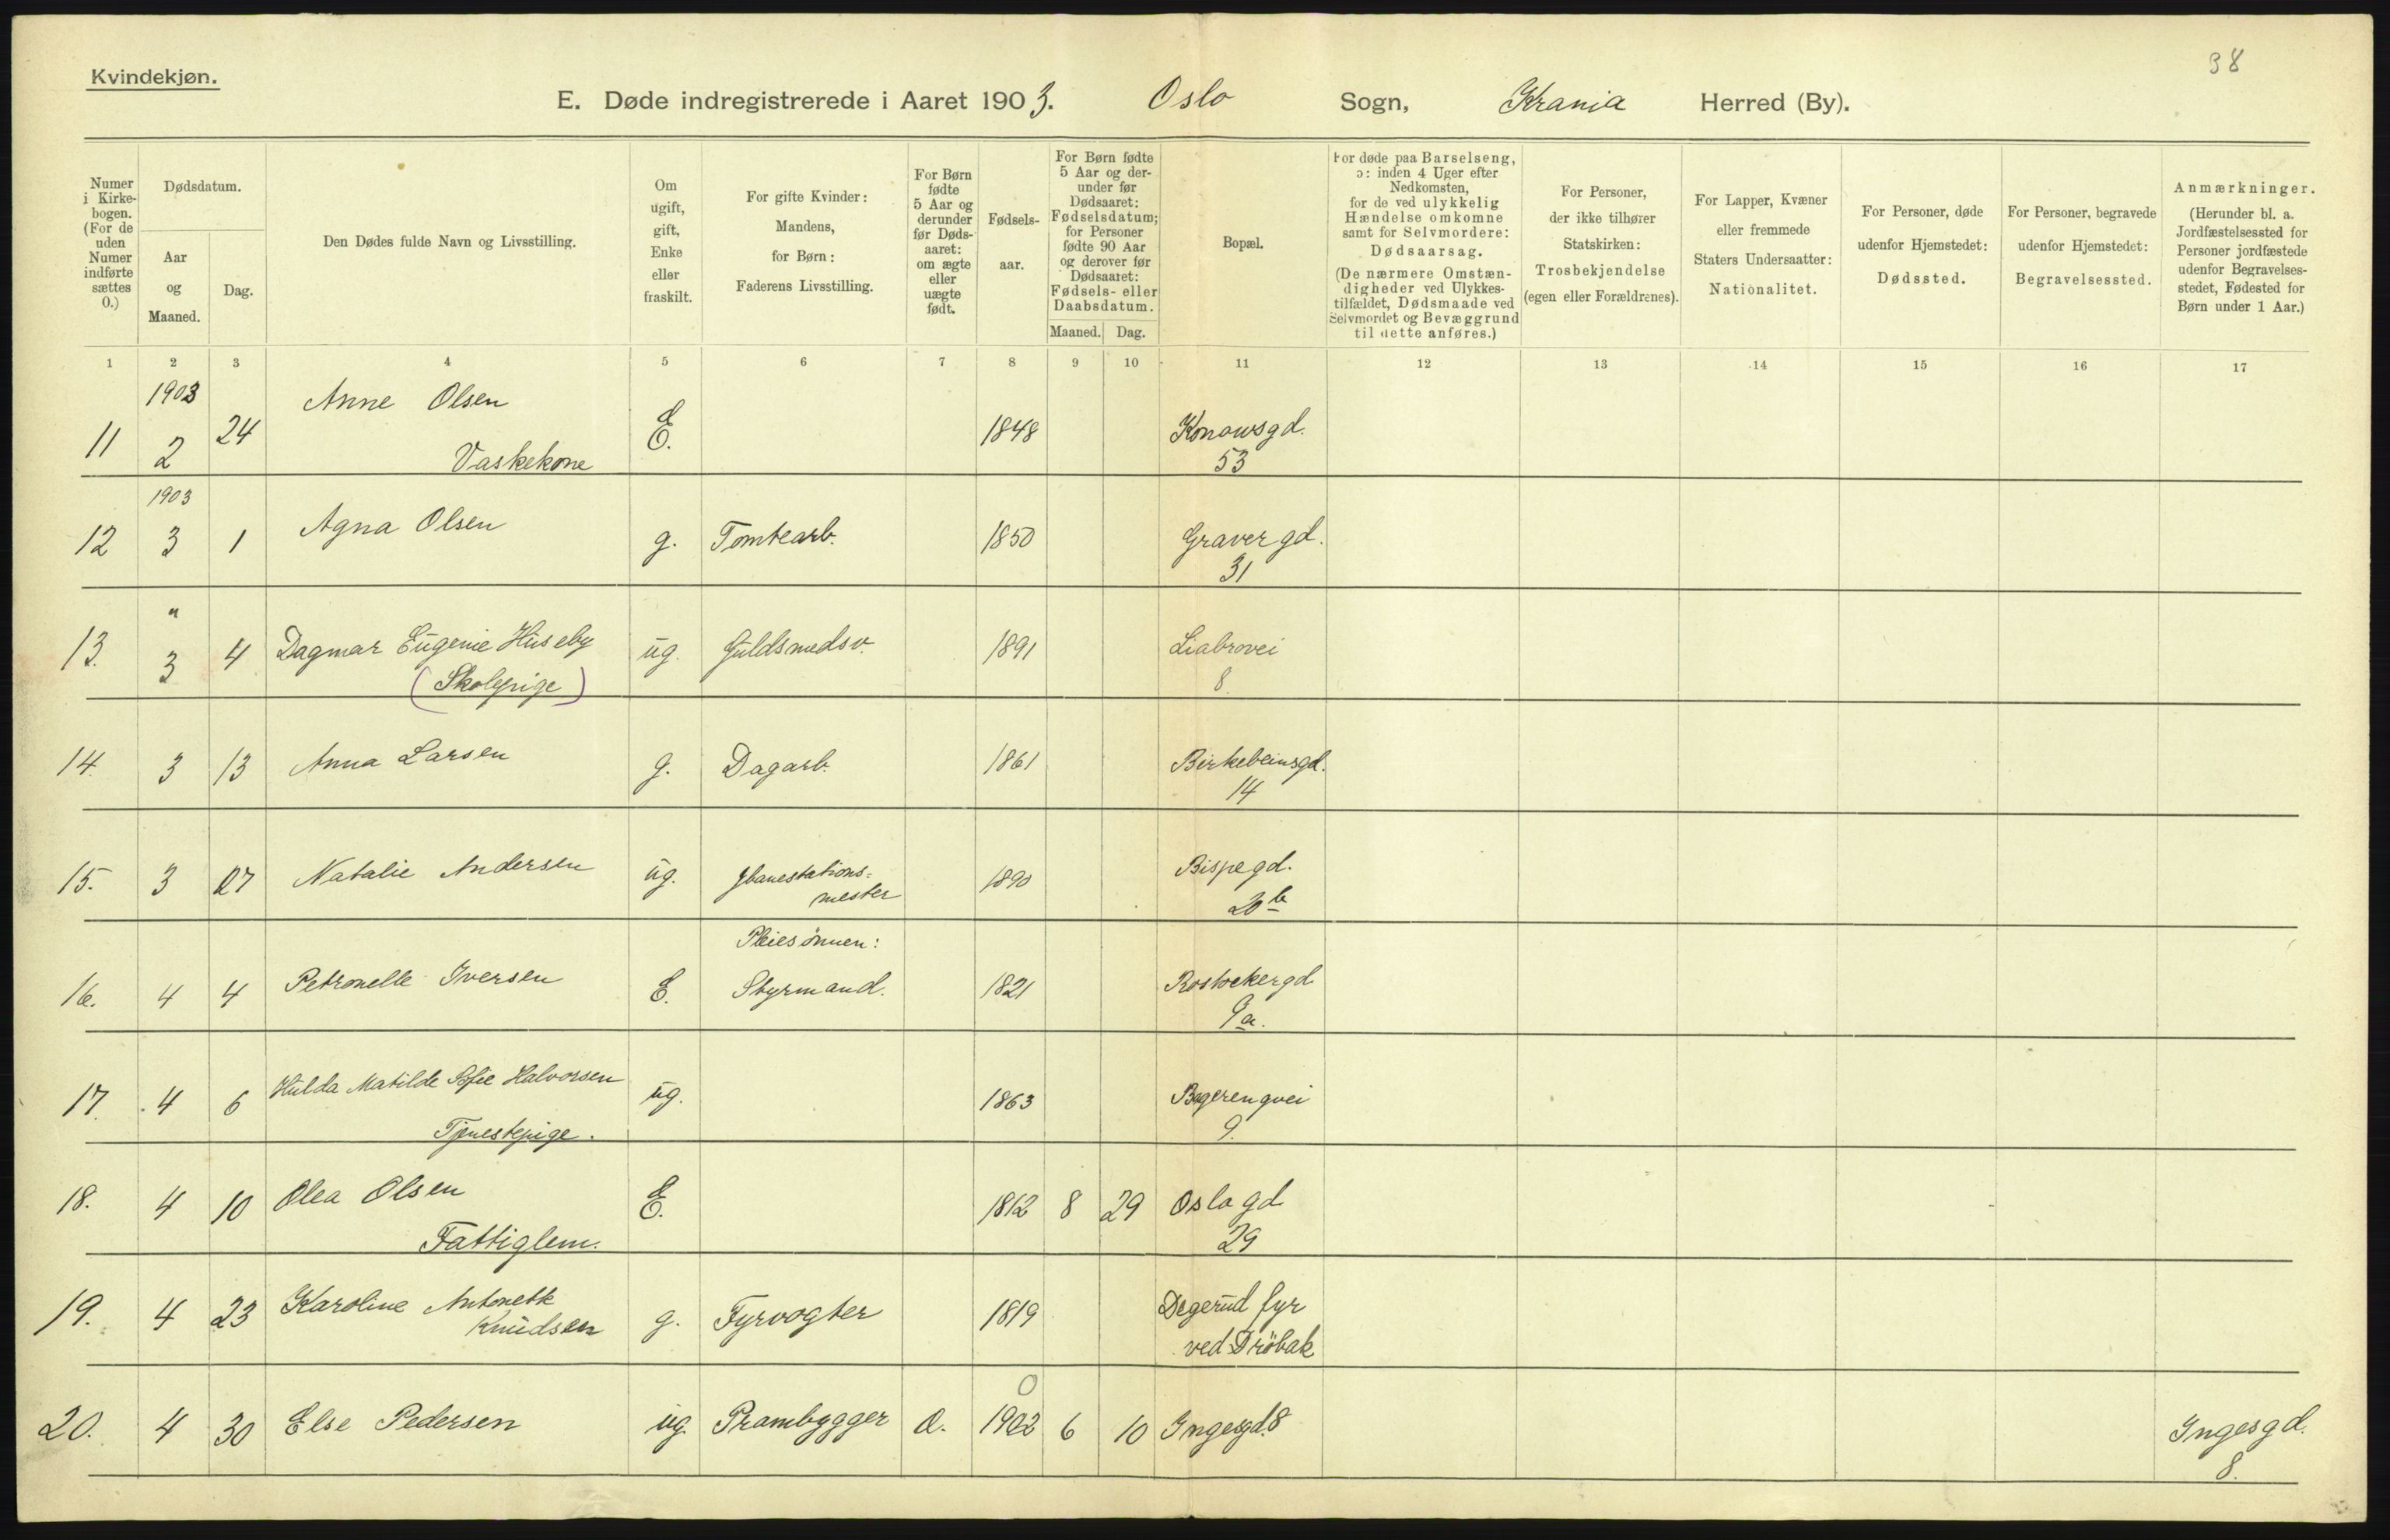 38
Kvindekjøn.
E. Døde indregistrerede i Aaret 1903. Oslo Sogn, Krania Herred (By).
Numer i Kirkebogen. (For de uden Numer indførte sættes 0.)
Dødsdatum.
Aar og Maaned.
Dag.
Den Dødes fulde Navn og Livsstilling.
Om ugift, gift, Enke eller fraskilt.
For gifte Kvinder: Mandens, for Børn: Faderens Livsstilling.
For Børn fødte 5 Aar og derunder før Dødsaaret: om ægte eller uægte født.
Fødselsaar.
For Børn fødte 5 Aar og derunder før Dødsaaret: Fødselsdatum; for Personer fødte 90 Aar og derover før Dødsaaret: Fødsels- eller Daabsdatum.
Maaned. Dag.
Bopæl.
For døde paa Barselseng, ɔ: inden 4 Uger efter Nedkomsten, for de ved ulykkelig Hændelse omkomne samt for Selvmordere: Dødsaarsag. (De nærmere Omstændigheder ved Ulykkestilfældet, Dødsmaade ved Selvmordet og Bevæggrund til dette anføres.)
For Personer, der ikke tilhører Statskirken: Trosbekjendelse (egen eller Forældrenes).
For Lapper, Kvæner eller fremmede Staters Undersaatter: Nationalitet.
For Personer, døde udenfor Hjemstedet: Dødssted.
For Personer, begravede udenfor Hjemstedet: Begravelsessted.
Anmærkninger. (Herunder bl. a. Jordfæstelsessted for Personer jordfæstede udenfor Begravelsesstedet, Fødested for Børn under 1 Aar.)
1 2 3 4 5 6 7 8 9 10 11 12 13 14 15 16 17
1903
11 2 24 Anne Olsen E. 1848 Konowsgd.
Vaskekone 53
1903
12 3 1 Agna Olsen g. Tomtearb. 1850 Gravergd.
31
"
13. 3 4 Dagmar Eugenie Huseby ug. Guldsmedsv. 1891 Liabrovei
(Skolepige) 8.
14. 3 13 Anna Larsen g. Dagarb. 1861 Birkebeinsgd.
14
15. 3 27 Natalie Andersen ug. Jbanestations= 1890 Bispegd.
mester 20 b
Pleiesönnen:
16. 4 4 Petronelle Iversen E. Styrmand. 1821 Rostockergd
9a.
17. 4 6 Hulda Matilde Sofie Halvorsen ug. 1863 Bøgerengvei
Tjenestepige. 9.
18. 4 10 Olea Olsen E. 1812 8 29 Oslogd
Fattiglem. 29
19. 4 23 Karoline Antonette g. Fyrvogter 1819 Degerud fyr
Knudsen ved Dröbak
0
20. 4 30 Else Pedersen ug. Prambygger a. 1902 6 10 Ingesgd. 8 Ingesgd.
8.